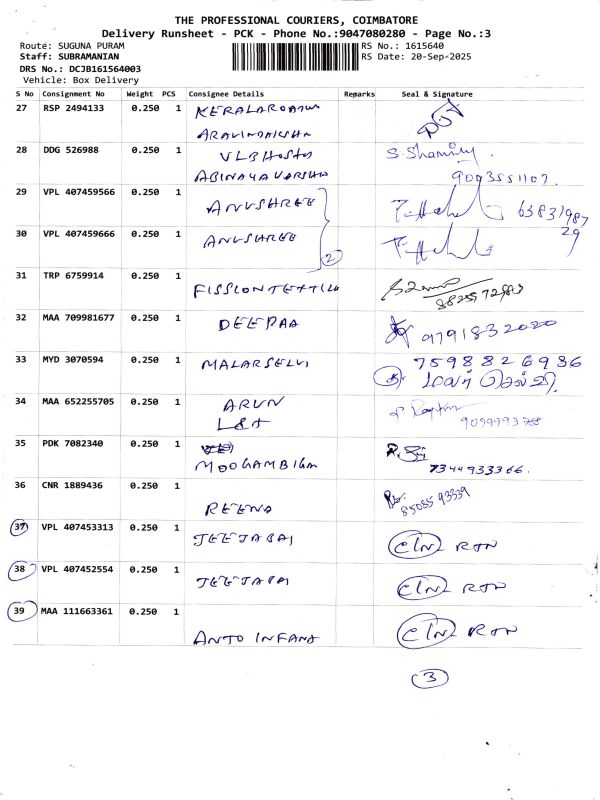 THE PROFESSIONAL COURIERS, COIMBATORE
Delivery Runsheet - PCK - Phone No.:9047080280 - Page No.:3
Route: SUGUNA PURAM
RS No.: 1615640
Staff: SUBRAMANIAN
RS Date: 20-Sep-2025
DRS No.: DCJB161564003
Vehicle: Box Delivery
S No Consignment No Weight PCS Consignee Details Remarks Seal & Signature
27 RSP 2494133 0.250 1
28 DDG 526988 0.250 1 VLB
9003551107
29 VPL 407459566 0.250 1 ANUSHREE
30 VPL 407459666 0.250 1 ANUSHREE
2
31 TRP 6759914 0.250 1 FISSION
32 MAA 709981677 0.250 1 DEEPAA 9791832020
33 MYD 3070594 0.250 1 MALARSELVI 7598826936
மலர் செல்வி
34 MAA 652255705 0.250 1 ARUN
L&T
35 PDK 7082340 0.250 1
MOOGAMBIGA 7344933366.
36 CNR 1889436 0.250 1
REENA
37 VPL 407453313 0.250 1 JEEJABAI RTN
38 VPL 407452554 0.250 1 JEEJABAI RTN
39 MAA 111663361 0.250 1 RTN
ANTO INFANT
3